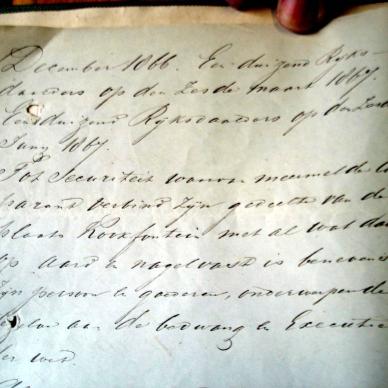 December 1866. Een duizend Ryks-
daalders op den Zesde maart 1867.
Een duizend Ryksdaalders op den Zes
Juny 1867.
Tot Securiteit waarvan
verbind Zijn gedeelte van de
plaats met al wat daar
op aard & nagelvast is benevens
Zijn persoon & goederen, onderwerpende
aan de bedwang & Executie
der wet.